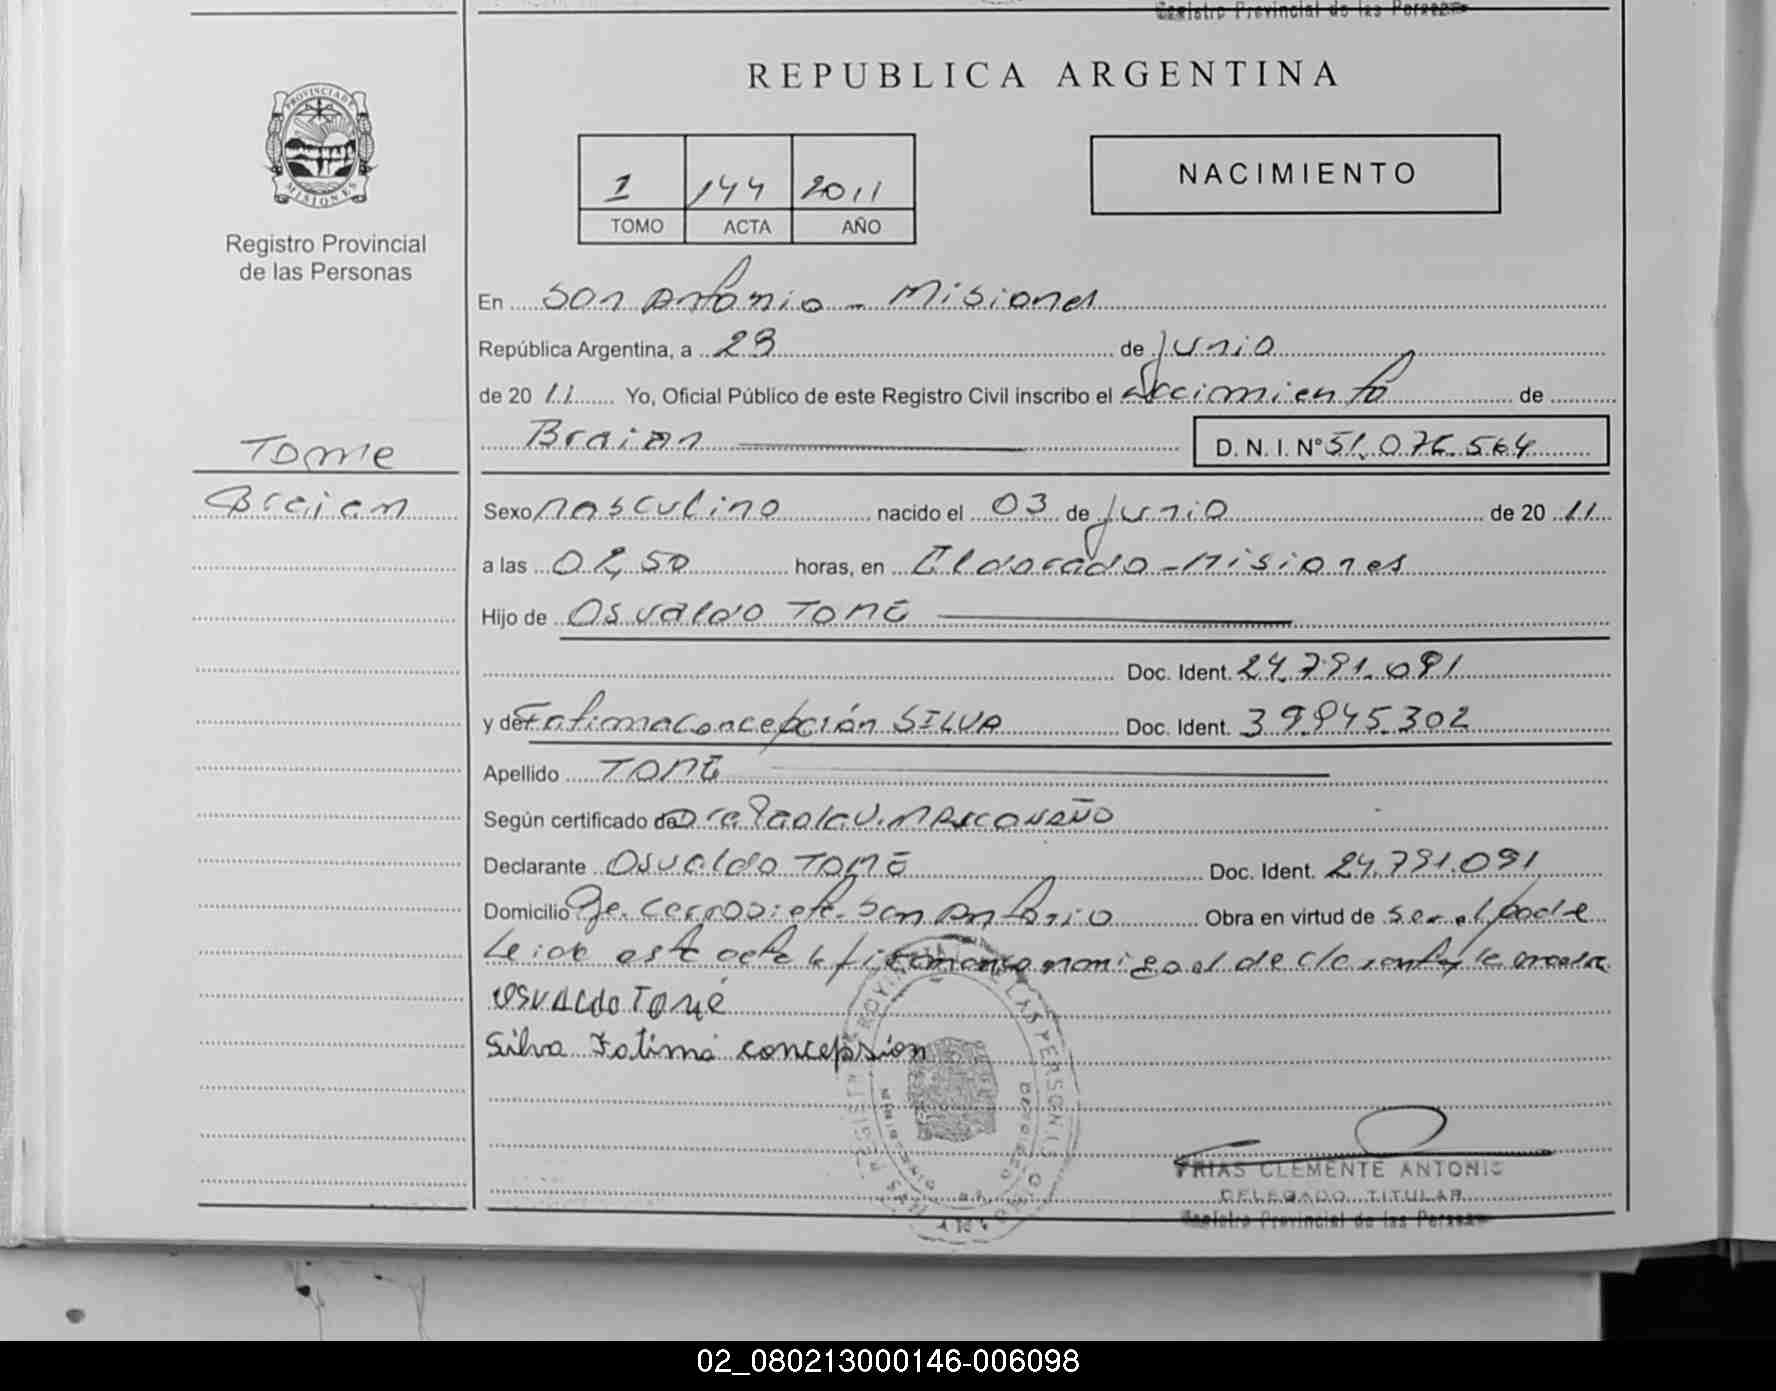 Registro Provincial de las Personas
REPUBLICA ARGENTINA
PROVINCIA DE
MISIONES
1 144 2011
TOMO ACTA AÑO
NACIMIENTO
Registro Provincial
de las Personas
En San Antonio - Misiones
República Argentina, a 29 de junio
de 2011 Yo, Oficial Público de este Registro Civil inscribo el nacimiento de
Braian D. N. I. Nº 51.076.564
TOME
Braian
Sexo masculino nacido el 03 de junio de 2011
a las 02,50 horas, en Eldorado - Misiones
Hijo de Osvaldo TOMÉ
Doc. Ident. 24.791.091
y de Fatima Concepción SILVA Doc. Ident. 39.945.302
Apellido TOMÉ
Según certificado de Dra Paola V.
Declarante Osvaldo TOMÉ Doc. Ident. 24.791.091
Domicilio San Antonio Obra en virtud de ser el padre
Leida este acta la firman conmigo el declarante y la madre
OSVALdo Tomé
Silva Fatima concepsion
FRIAS CLEMENTE ANTONIO
DELEGADO TITULAR
Registro Provincial de las Personas
02_080213000146-006098